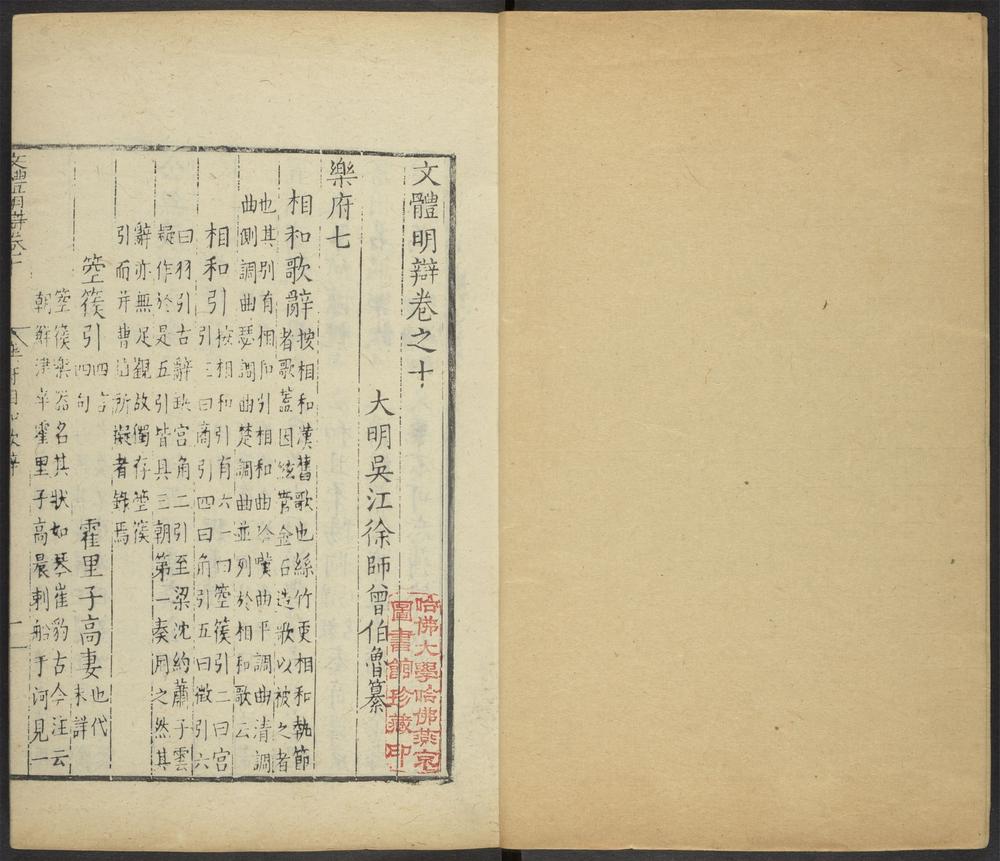 文體明辯卷之十
大明吳江徐師曾伯魯纂
樂府七
相和歌辭
按相和漢舊歌也絲竹更相和執節
者歌蓋因絃管金石造歌以被之者
也其別有相和引相和曲吟嘆曲平調曲清調
曲側調曲瑟調曲楚調曲並列於相和歌云
相和引
按相和引有六一曰箜篌引二曰宮
引三曰商引四曰角引五曰徵引六
曰羽引古辭缺宮角二引至梁沈約蕭子雲
疑作於是五引皆具三朝第一奏用之然其
辭亦無足觀故獨存箜篌
引而并曹植所擬者錄焉
箜篌引
四言
四句
霍里子高妻
也代
未詳
箜篌樂器名其狀如琴崔豹古今注云
朝鮮津卒霍里子高晨刺船于河見一
文體明辯卷十
哈佛大學哈佛燕京
圖書館珍藏印